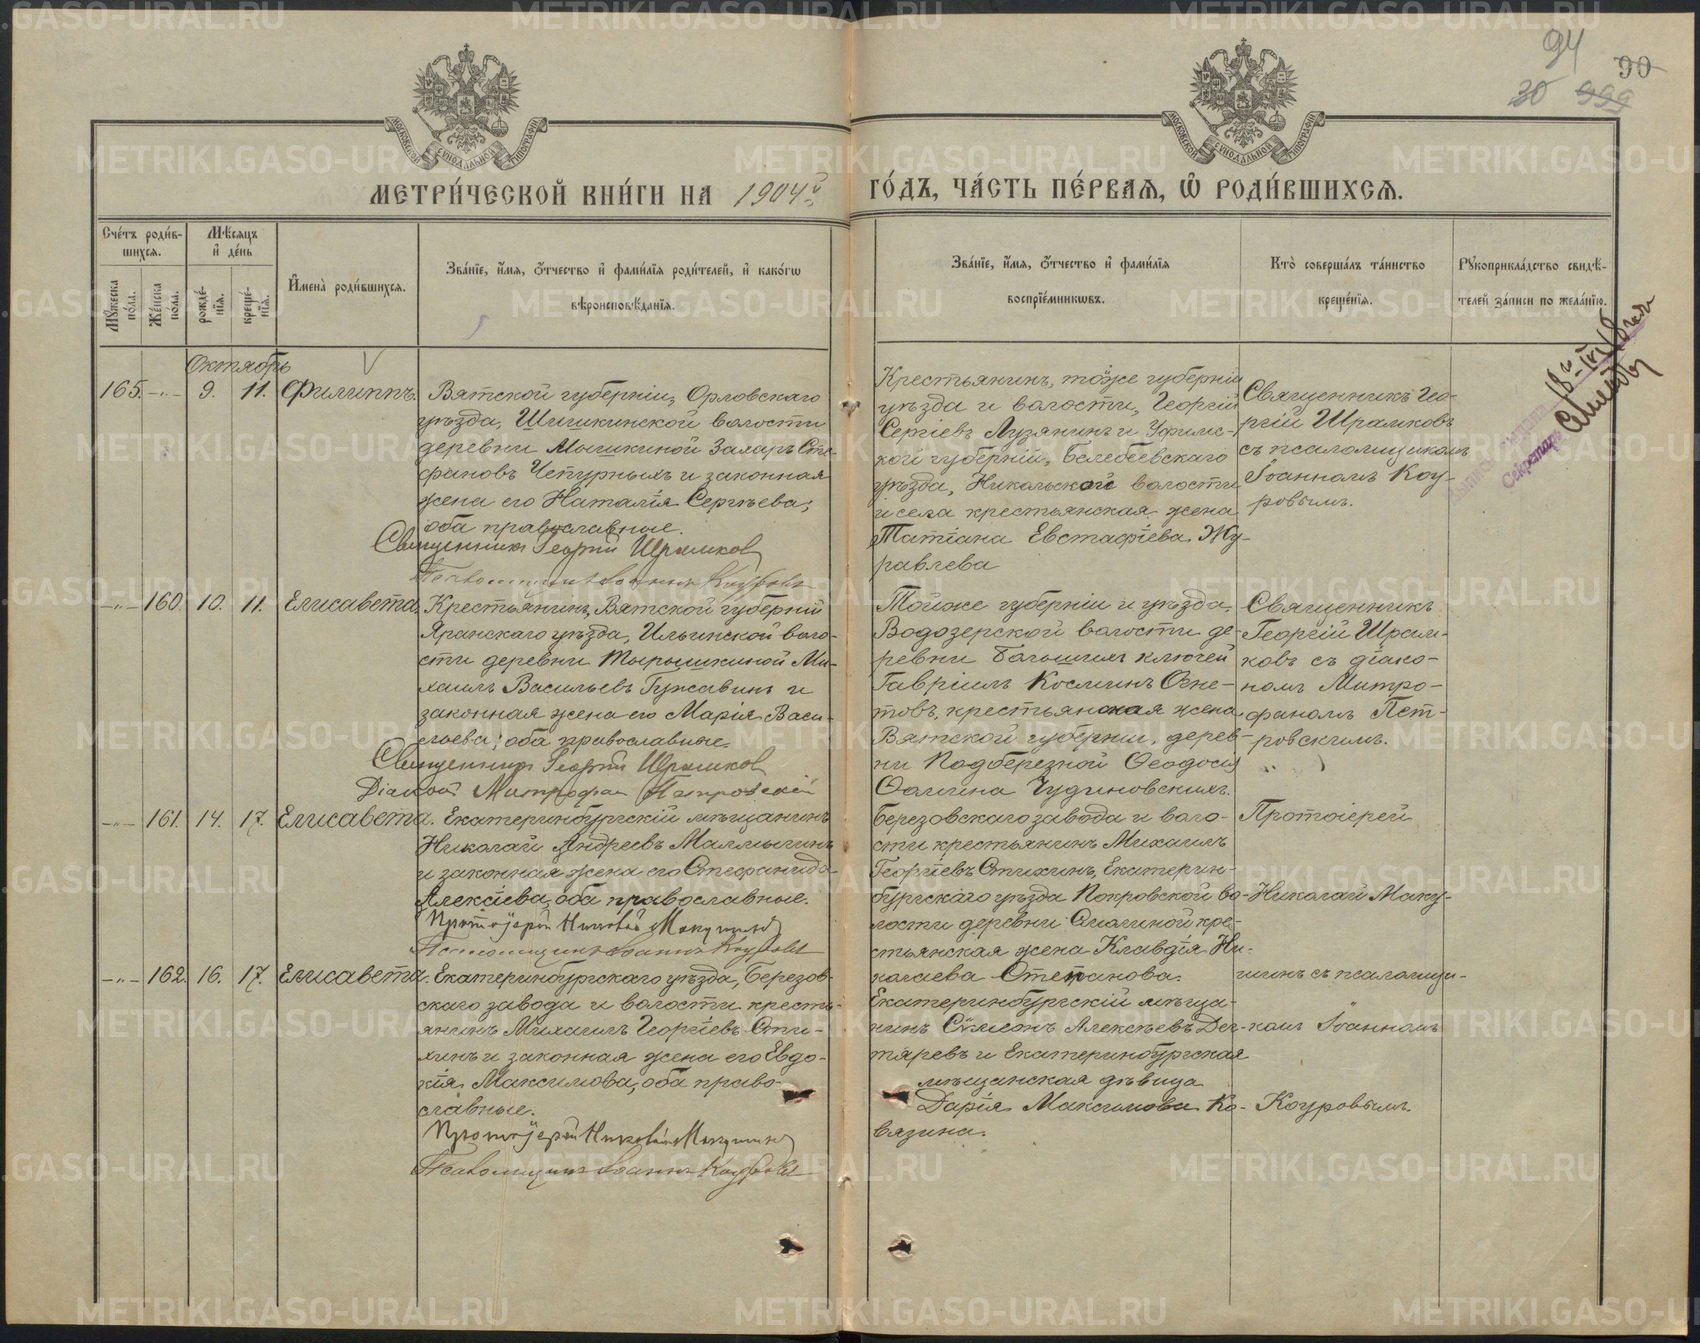 94
90
30 999
МОСКОВСКОЙ СѴНОДАЛЬНОЙ ТИПОГРАФІИ
МОСКОВСКОЙ СѴНОДАЛЬНОЙ ТИПОГРАФІИ
МЕТРИ́ЧЕСКОЙ КНИ́ГИ НА 1904й
ГО́ДЪ, ЧА́СТЬ ПЕ́РВАЯ, Ѡ РОДИ́ВШИХСЯ.
Сче́тъ роди́в-
шихся.
Мѣ́сяцъ
и҆ де́нь
Мꙋ́жеска
по́ла.
Же́нска
по́ла.
рожде́-
нїя.
креще́-
нїя.
И҆мена̀ роди́вшихся.
Зва́нїе, и҆́мя, ѻ҆́тчество и҆ фами́лїя роди́телей, и҆ како́гѡ
вѣроисповѣ́данїя.
Зва́нїе, и҆́мя, ѻ҆́тчество и҆ фами́лїя
воспрїе́мникѡвъ.
Кто̀ соверша́лъ та́инство
креще́нїя.
Рꙋкоприкла́дство свидѣ́-
телей за́писи по жела́нїю.
Октябрь
165. -"- 9. 11. Филиппъ.
Вятской губерніи, Орловскаго
уѣзда, Шишкинской волости
деревни Мышкиной Захаръ Сте-
фановъ Чепурныхъ и законная
жена его Наталія Сергѣева,
оба православные.
Священникъ Георгій Шрамков
Псаломщикъ Іоаннъ Коуровъ
Крестьянинъ, тойже губерніи
уѣзда и волости, Георгій
Сергіевъ Лузянинъ и Уфимс-
кой губерніи, Белебеевскаго
уѣзда, Никольской волости
и села крестьянская жена
Татіана Евстафіева Жу-
равлева
Священникъ Гео-
ргій Шрамковъ
съ псаломщикомъ
Іоанномъ Коу-
ровымъ.
Секретарь
-"- 160. 10. 11. Елисавета.
Крестьянинъ, Вятской губерніи
Яранскаго уѣзда, Ильинской воло-
сти деревни Тырышкиной Ми-
хаилъ Васильевъ Гужавинъ и
законная жена его Марія Васи-
льева; оба православные.
Священникъ Георгій Шрамков
Діаконъ Митрофан Петровскій
Тойже губерніи и уѣзда,
Водозерской волости де-
ревни Большихъ ключей
Гавріилъ Косминъ Огне-
товъ, крестьянская жена
Вятской губерніи, дерев-
ни Подберезной Ѳеодосія
Ѳомина Чудиновскихъ.
Священникъ
Георгій Шрам-
ковъ съ діако-
номъ Митро-
фаномъ Пет-
ровскимъ.
-"- 161. 14. 17. Елисавета.
Екатеринбургскій мѣщанинъ
Николай Андреевъ Малмыгинъ
и законная жена его Стефанида
Алексіева, оба православные.
Протоіерей Николай Макушинъ
Псаломщикъ Іоаннъ Коуровъ
Березовскаго завода и воло-
сти крестьянинъ Михаилъ
Георгіевъ Стихинъ, Екатерин-
бургскаго уѣзда Покровской во-
лости деревни Смолиной кре-
стьянская жена Клавдія Ни-
колаева Степанова.
Протоіерей
Николай Маку-
-"- 162. 16. 17. Елисавета.
Екатеринбургскаго уѣзда, Березов-
скаго завода и волости кресть-
янинъ Михаилъ Георгіевъ Сти-
хинъ и законная жена его Евдо-
кія Максимова, оба право-
славные.
Протоіерей Николай Макушинъ
Псаломщикъ Іоаннъ Коуровъ
Екатеринбургскій мѣща-
нинъ Сѵмеонъ Алексѣевъ Дег-
тяревъ и Екатеринбургская
мѣщанская дѣвица
Дарія Максимова Ко-
вязина.
шинъ съ псаломщи-
комъ Іоанномъ
Коуровымъ.
METRIKI.GASO-URAL.RU